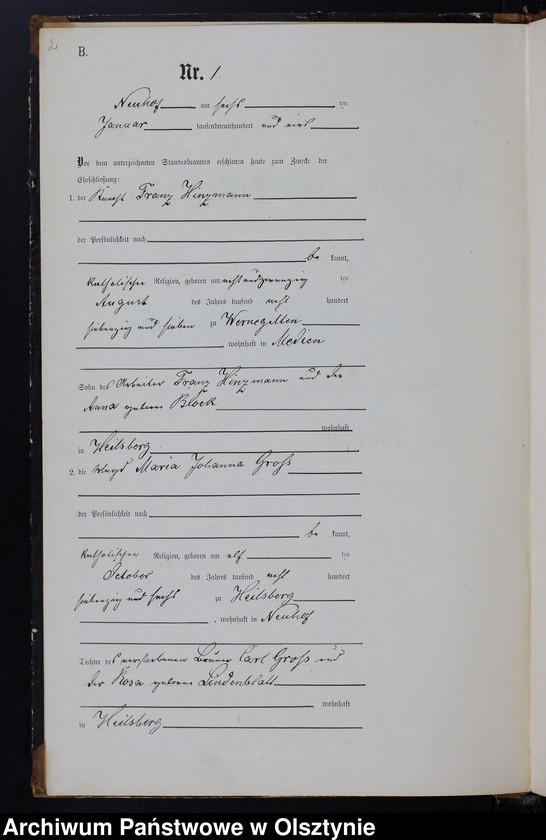 2
B.
Nr. 1
Neuhof am sechs ten
Januar tausendneunhundert und eins
Vor dem unterzeichneten Standesbeamten erschienen heute zum Zwecke der
Eheschließung:
1. der Knecht Franz Hinzmann
der Persönlichkeit nach
be kannt,
katholischer Religion, geboren am achtundzwanzig ten
August des Jahres tausend acht hundert
siebenzig und sieben zu Wernegitten
wohnhaft in Medien
Sohn des Arbeiter Franz Hinzmann und der
Anna geborene Block
wohnhaft
in Heilsberg
2. die Magd Maria Johanna Gross
der Persönlichkeit nach
be kannt,
katholischer Religion, geboren am elf ten
October des Jahres tausend acht hundert
siebenzig und sechs zu Heilsberg
, wohnhaft in Neuhof
Tochter des verstorbenen Carl Gross und
der Rosa geborene Lindenblatt
wohnhaft
in Heilsberg
Archiwum Państwowe w Olsztynie